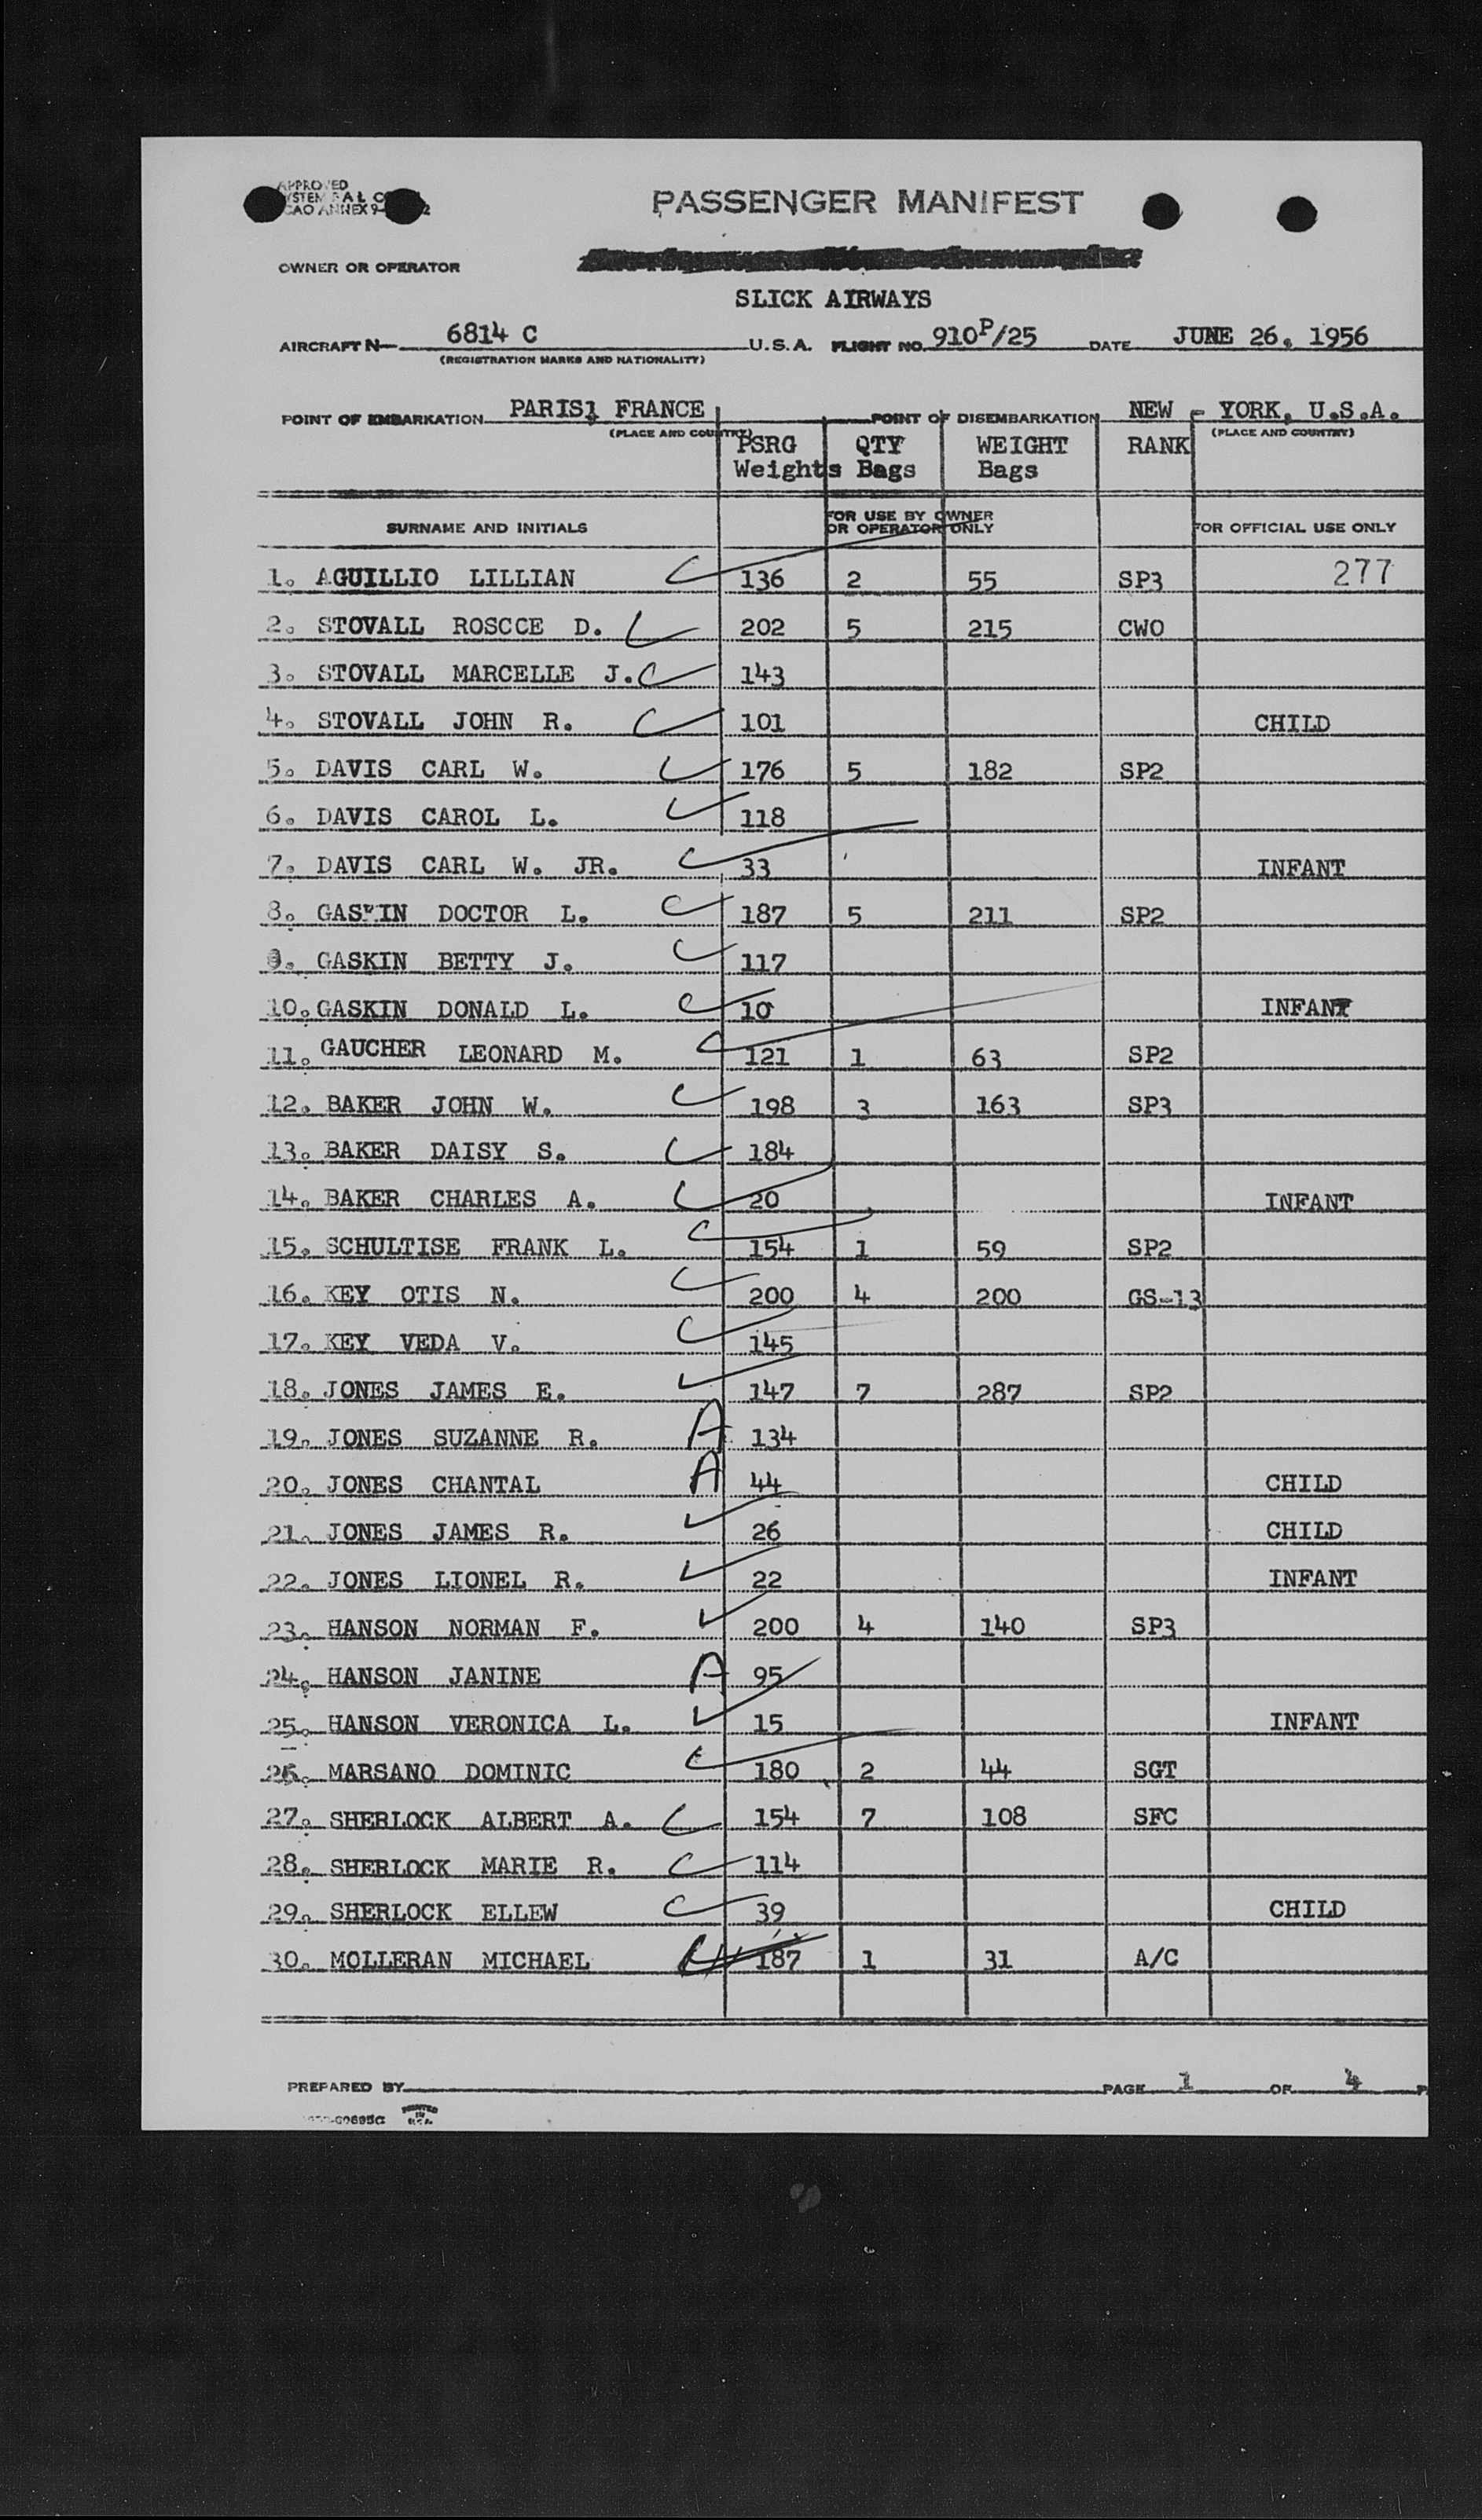 APPROVED
PASSENGER MANIFEST
OWNER OR OPERATOR
SLICK AIRWAYS
AIRCRAFT N- 6814 C U.S.A. FLIGHT NO. 910P/25 DATE JUNE 26. 1956
(REGISTRATION MARKS AND NATIONALITY)
POINT OF EMBARKATION PARIS1 FRANCE POINT OF DISEMBARKATION NEW - YORK, U.S.A.
(PLACE AND COUNTRY) (PLACE AND COUNTRY)
PSRG QTY WEIGHT RANK
Weights Bags Bags
SURNAME AND INITIALS FOR USE BY OWNER OR OPERATOR ONLY FOR OFFICIAL USE ONLY
1. AGUILLIO LILLIAN C 136 2 55 SP3 277
2. STOVALL ROSCCE D. C 202 5 215 CWO
3. STOVALL MARCELLE J. C 143
4. STOVALL JOHN R. C 101 CHILD
5. DAVIS CARL W. C 176 5 182 SP2
6. DAVIS CAROL L. C 118
7. DAVIS CARL W. JR. C 33 INFANT
8. GASKIN DOCTOR L. C 187 5 211 SP2
9. GASKIN BETTY J. C 117
10. GASKIN DONALD L. C 10 INFANT
11. GAUCHER LEONARD M. C 121 1 63 SP2
12. BAKER JOHN W. C 198 3 163 SP3
13. BAKER DAISY S. C 184
14. BAKER CHARLES A. C 20 INFANT
15. SCHULTISE FRANK L. C 154 1 59 SP2
16. KEY OTIS N. C 200 4 200 GS-13
17. KEY VEDA V. C 145
18. JONES JAMES E. 147 7 287 SP2
19. JONES SUZANNE R. A 134
20. JONES CHANTAL A 44 CHILD
21. JONES JAMES R. 26 CHILD
22. JONES LIONEL R. 22 INFANT
23. HANSON NORMAN F. 200 4 140 SP3
24. HANSON JANINE A 95
25. HANSON VERONICA L. 15 INFANT
26. MARSANO DOMINIC C 180 2 44 SGT
27. SHERLOCK ALBERT A. C 154 7 108 SFC
28. SHERLOCK MARIE R. C 114
29. SHERLOCK ELLEW C 39 CHILD
30. MOLLERAN MICHAEL 187 1 31 A/C
PREPARED BY PAGE 1 OF 4
PRINTED IN U.S.A.